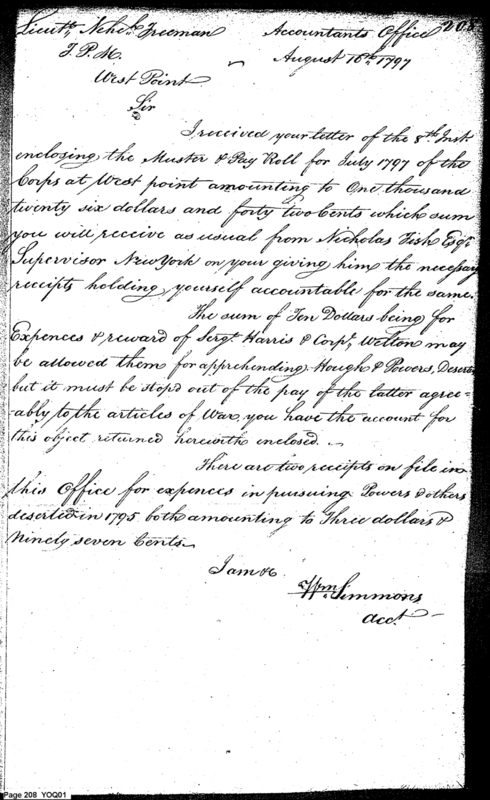 208
Lieutt. Neheh. Freeman Accountants Office
T. P. M. August 16th. 1797
West Point
Sir
I received your letter of the 8th. Inst
enclosing the Muster & Pay Roll for July 1797 of the
Corps at West point amounting to One thousand
twenty six dollars and forty two Cents which sum
you will receive as usual from Nicholas Fish Esqr.
Supervisor New York on your giving him the necessary
receipts holding yourself accountable for the same.
The sum of Ten Dollars being for
Expences & reward of Sergt. Harris & Corpl. Welton may
be allowed them for apprehending Hough & Powers, Deserters
but it must be stop'd out of the pay of the latter agree-
ably to the articles of War, you have the account for
this object returned herewith enclosed.
There are two receipts on file in
this Office for expences in pursuing Powers & others
deserted in 1795 both amounting to Three dollars &
Ninety seven Cents.
I am &c
Wm. Simmons
acct.
Page 208 YOQ01